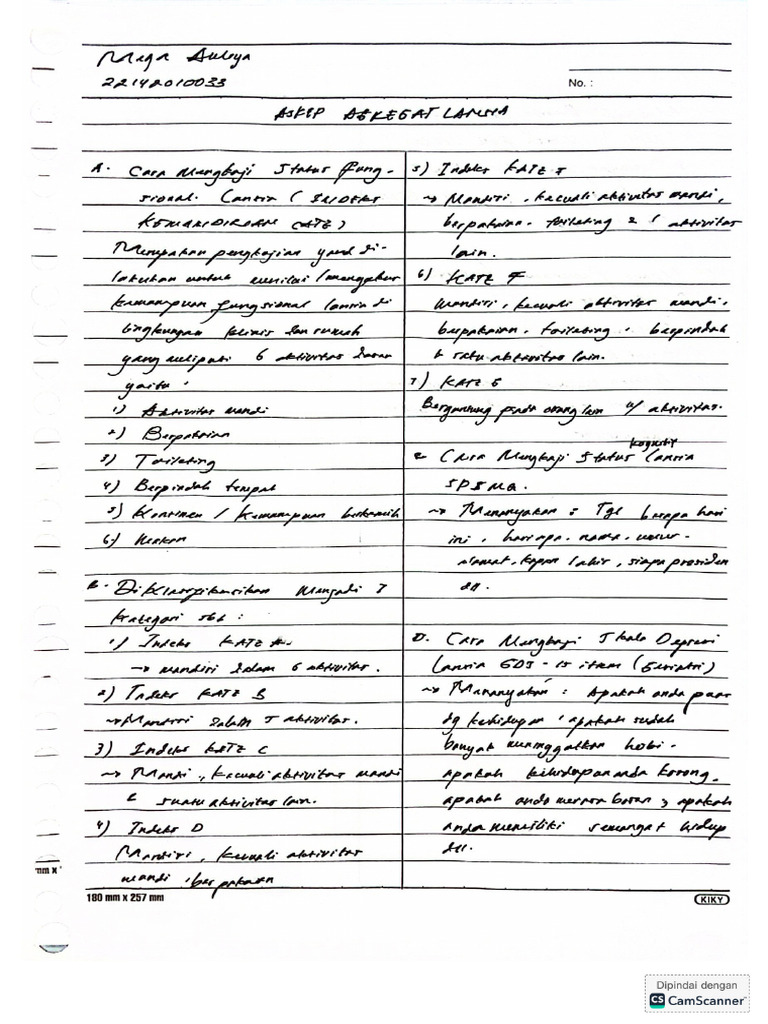 Mega Auliya
22142010033
No. :
ASKEP AGREGAT LANSIA
A. Cara Mengkaji Status Fung-
sional Lansia (INDEKS
KEMANDIRIAN KATZ)
Merupakan pengkajian yang di-
lakukan untuk menilai / mengukur
kemampuan fungsional lansia di
lingkungan klinis dan rumah
yang meliputi 6 aktivitas dasar
yaitu :
1) Aktivitas mandi
2) Berpakaian
3) Toileting
4) Berpindah tempat
5) Kontinen / Kemampuan berkemih
6) Makan
B. Di Klasifikasikan Menjadi 7
kategori sbb :
1) Indeks KATZ A
→ mandiri dalam 6 aktivitas.
2) Indeks KATZ B
→ Mandiri dalam 5 aktivitas.
3) Indeks KATZ C
→ Mandi, kecuali aktivitas mandi
& suatu aktivitas lain.
4) Indeks D
Mandiri, kecuali aktivitas
mandi, berpakaian
5) Indeks KATZ
→ Mandiri, kecuali aktivitas mandi,
berpakaian, toileting & 1 aktivitas
lain.
6) KATZ F
Mandiri, kecuali aktivitas mandi,
berpakaian, toileting, berpindah
& satu aktivitas lain.
7) KATZ G
Bergantung pada orang lain u/ aktivitas.
Cara Mengkaji Status kognitif Lansia
SPSMQ.
→ Menanyakan : Tgl berapa hari
ini, hari apa, nama, umur,
alamat, kapan lahir, siapa presiden
dll.
D. Cara Mengkaji Skala Depresi
Lansia GDS - 15 item (Geriatri)
→ Menanyakan : Apakah anda puas
dg kehidupan, apakah sudah
banyak meninggalkan hobi.
apakah kehidupan anda kosong,
apakah anda merasa bosan, apakah
anda memiliki semangat hidup
dll.
mm x
180 mm x 257 mm
KIKY
Dipindai dengan
CS CamScanner